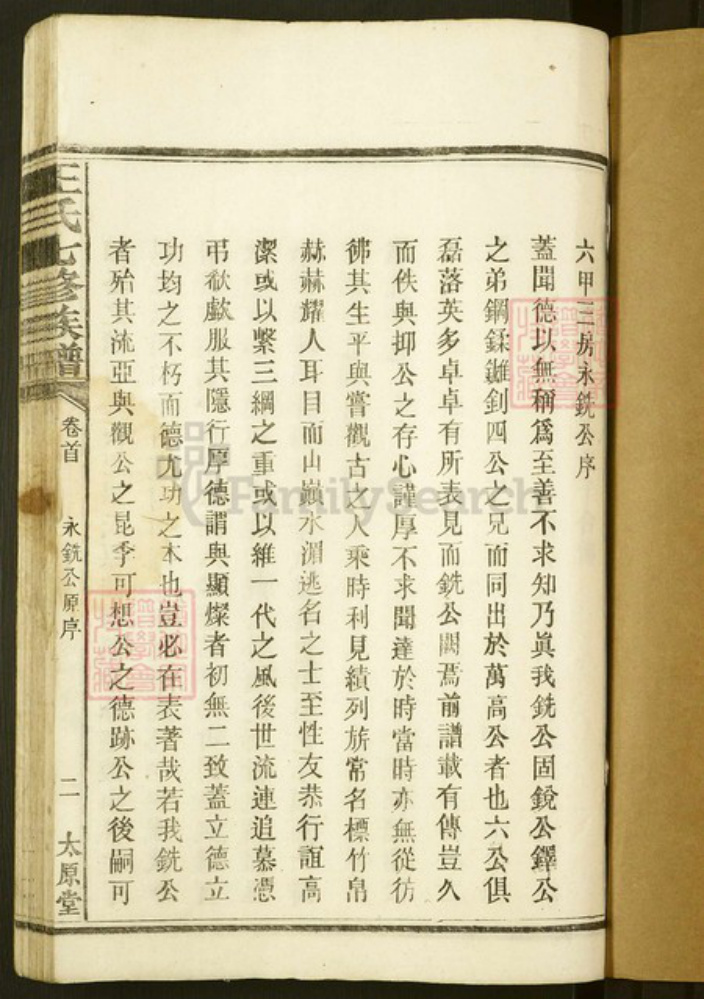 六甲三房永銑公序
蓋聞德以無稱爲至善不求知乃眞我銑公固銳公鐸公
之弟鋼鍒釗四公之兄而同出於萬高公者也六公俱
磊落英多卓卓有所表見而銑公闕焉前譜載有傳豈久
而佚與抑公之存心謹厚不求聞達於時當時亦無從彷
彿其生平與嘗觀古之人乘時利見績列旂常名標竹帛
赫赫耀人耳目而山巔水湄逃名之士至性友恭行誼高
潔或以繫三綱之重或以維一代之風後世流連追慕憑
弔欷歔服其隱行厚德謂與顯燦者初無二致蓋立德立
功均之不朽而德尤功之本也豈必在表著哉若我銑公
者殆其流亞與觀公之昆季可想公之德跡公之後嗣可
王氏七修族譜
卷首
永銑公原序
二
太原堂
FamilySearch